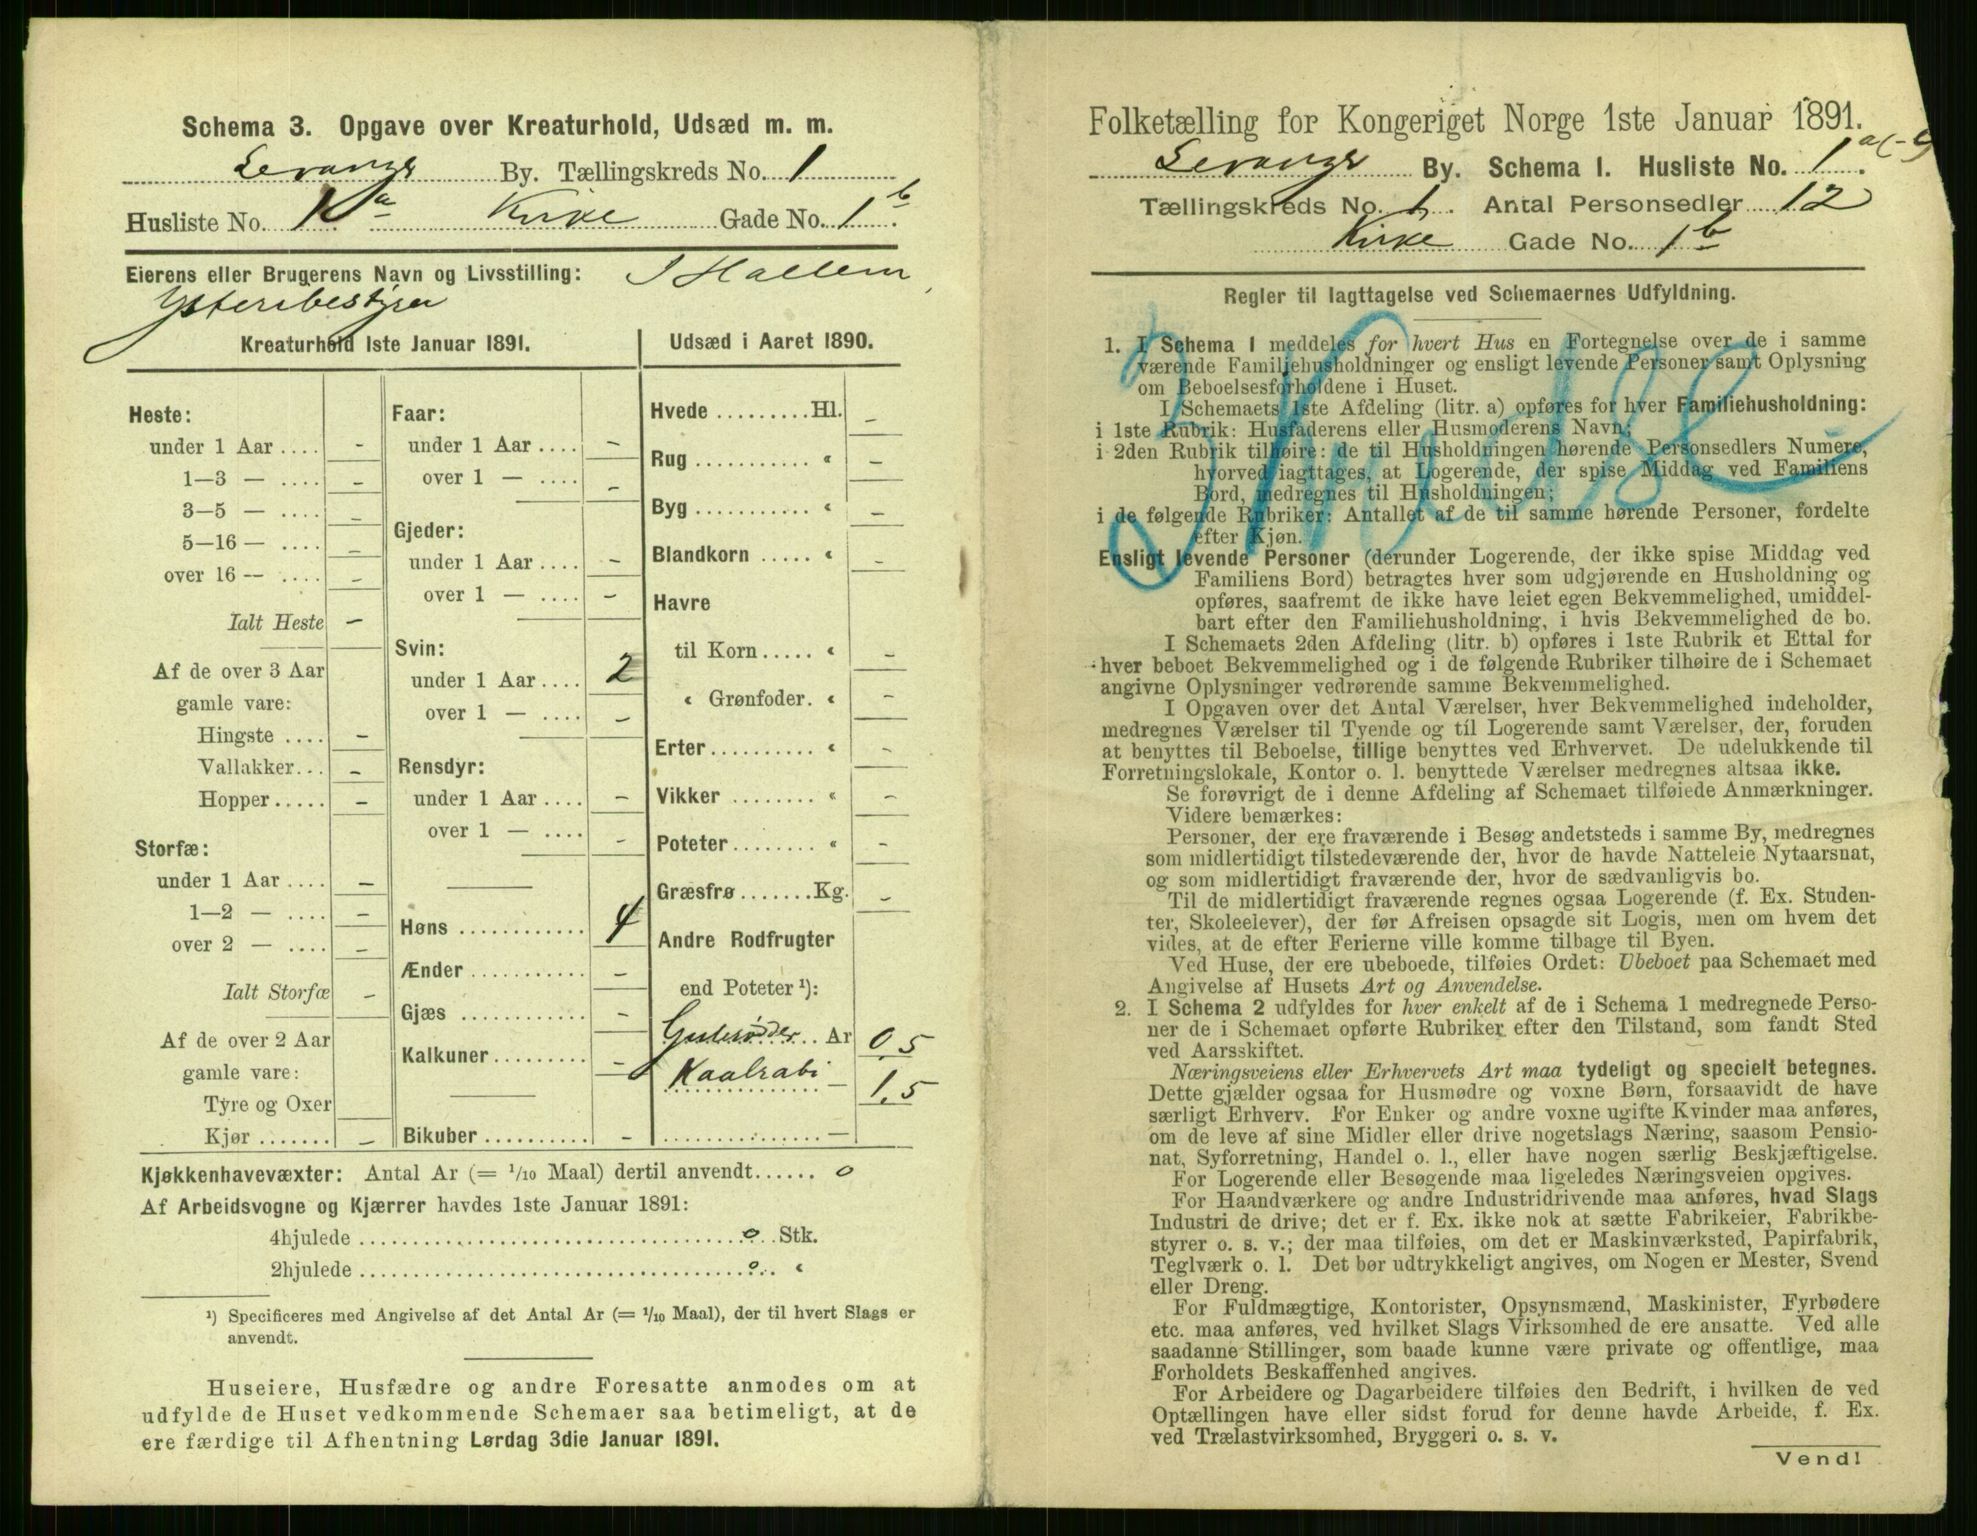 Schema 3. Opgave over Kreaturhold, Udsæd m. m.
Levanger By. Tællingskreds No. 1
Husliste No. 1 a Kirke Gade No. 1 b.
Eierens eller Brugerens Navn og Livsstilling: J Hallem,
Ysteribestyrer
Kreaturhold 1ste Januar 1891.
Heste:
under 1 Aar .... –
1—3 — .... –
3—5 — .... –
5—16 — .... –
over 16 — .... –
Ialt Heste –
Af de over 3 Aar
gamle vare:
Hingste .... –
Vallakker... –
Hopper..... –
Storfæ:
under 1 Aar .... –
1—2 — .... –
over 2 — .... –
Ialt Storfæ –
Af de over 2 Aar
gamle vare:
Tyre og Oxer
Kjør ....... –
Faar:
under 1 Aar .... –
over 1 — .... –
Gjeder:
under 1 Aar .... –
over 1 — .... –
Svin:
under 1 Aar .... 2
over 1 — .... –
Rensdyr:
under 1 Aar .... –
over 1 — .... –
Høns ............ 4
Ænder ........... –
Gjæs ............ –
Kalkuner......... –
Bikuber .......... –
Udsæd i Aaret 1890.
Hvede .........Hl. –
Rug ........... « –
Byg ........... « –
Blandkorn ..... « –
Havre
til Korn ..... « –
« Grønfoder. « –
Erter.......... « –
Vikker ........ « –
Poteter ........ « –
Græsfrø .......Kg. –
Andre Rodfrugter
end Poteter ¹):
Gulerødder... Ar 0,5
Kaalrabi — 1,5
............... —
Kjøkkenhavevæxter: Antal Ar (= 1/10 Maal) dertil anvendt...... 0
Af Arbeidsvogne og Kjærrer havdes 1ste Januar 1891:
4hjulede ........................................ 0 Stk.
2hjulede ........................................ 0 «
¹) Specificeres med Angivelse af det Antal Ar (= 1/10 Maal), der til hvert Slags er
anvendt.
Huseiere, Husfædre og andre Foresatte anmodes om at
udfylde de Huset vedkommende Schemaer saa betimeligt, at de
ere færdige til Afhentning Lørdag 3die Januar 1891.
Folketælling for Kongeriget Norge 1ste Januar 1891.
Levanger By. Schema 1. Husliste No. 1
Tællingskreds No. 1. Antal Personsedler 12
Kirke Gade No. 1 b
Regler til Iagttagelse ved Schemaernes Udfyldning.
1. I Schema 1 meddeles for hvert Hus en Fortegnelse over de i samme
værende Familiehusholdninger og ensligt levende Personer samt Oplysning
om Beboelsesforholdene i Huset.
I Schemaets 1ste Afdeling (litr. a) opføres for hver Familiehusholdning:
i 1ste Rubrik: Husfaderens eller Husmoderens Navn;
i 2den Rubrik tilhøire: de til Husholdningen hørende Personsedlers Numere,
hvorved iagttages, at Logerende, der spise Middag ved Familiens
Bord, medregnes til Husholdningen;
i de følgende Rubriker: Antallet af de til samme hørende Personer, fordelte
efter Kjøn.
Ensligt levende Personer (derunder Logerende, der ikke spise Middag ved
Familiens Bord) betragtes hver som udgjørende en Husholdning og
opføres, saafremt de ikke have leiet egen Bekvemmelighed, umiddel-
bart efter den Familiehusholdning, i hvis Bekvemmelighed de bo.
I Schemaets 2den Afdeling (litr. b) opføres i 1ste Rubrik et Ettal for
hver beboet Bekvemmelighed og i de følgende Rubriker tilhøire de i Schemaet
angivne Oplysninger vedrørende samme Bekvemmelighed.
I Opgaven over det Antal Værelser, hver Bekvemmelighed indeholder,
medregnes Værelser til Tyende og til Logerende samt Værelser, der, foruden
at benyttes til Beboelse, tillige benyttes ved Erhvervet. De udelukkende til
Forretningslokale, Kontor o. l. benyttede Værelser medregnes altsaa ikke.
Se forøvrigt de i denne Afdeling af Schemaet tilføiede Anmærkninger.
Videre bemærkes:
Personer, der ere fraværende i Besøg andetsteds i samme By, medregnes
som midlertidigt tilstedeværende der, hvor de havde Natteleie Nytaarsnat,
og som midlertidigt fraværende der, hvor de sædvanligvis bo.
Til de midlertidigt fraværende regnes ogsaa Logerende (f. Ex. Studen-
ter, Skoleelever), der før Afreisen opsagde sit Logis, men om hvem det
vides, at de efter Ferierne ville komme tilbage til Byen.
Ved Huse, der ere ubeboede, tilføies Ordet: Ubeboet paa Schemaet med
Angivelse af Husets Art og Anvendelse.
2. I Schema 2 udfyldes for hver enkelt af de i Schema 1 medregnede Perso-
ner de i Schemaet opførte Rubriker efter den Tilstand, som fandt Sted
ved Aarsskiftet.
Næringsveiens eller Erhvervets Art maa tydeligt og specielt betegnes.
Dette gjælder ogsaa for Husmødre og voxne Børn, forsaavidt de have
særligt Erhverv. For Enker og andre voxne ugifte Kvinder maa anføres,
om de leve af sine Midler eller drive nogetslags Næring, saasom Pensio-
nat, Syforretning, Handel o. l., eller have nogen særlig Beskjæftigelse.
For Logerende eller Besøgende maa ligeledes Næringsveien opgives.
For Haandværkere og andre Industridrivende maa anføres, hvad Slags
Industri de drive; det er f. Ex. ikke nok at sætte Fabrikeier, Fabrikbe-
styrer o. s. v.; der maa tilføies, om det er Maskinværksted, Papirfabrik,
Teglværk o. l. Det bør udtrykkeligt angives, om Nogen er Mester, Svend
eller Dreng.
For Fuldmægtige, Kontorister, Opsynsmænd, Maskinister, Fyrbødere
etc. maa anføres, ved hvilket Slags Virksomhed de ere ansatte. Ved alle
saadanne Stillinger, som baade kunne være private og offentlige, maa
Forholdets Beskaffenhed angives.
For Arbeidere og Dagarbeidere tilføies den Bedrift, i hvilken de ved
Optællingen have eller sidst forud for denne havde Arbeide, f. Ex.
ved Trælastvirksomhed, Bryggeri o. s. v.
Vend!